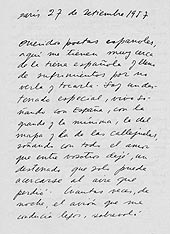 paris 27 de setiembre 1957
Queridos poetas españoles,
aquí me tienen muy cerca
de la tierra española y lleno
de sufrimientos por no
verla y tocarla. Soy un des-
terrado especial, vivo so-
ñando con España, con la
grande y la mínima, la del
mapa y la de las callejuelas,
soñando con todo el amor
que entre vosotros dejé, un
desterrado que solo puede
acercarse al aire que
perdió. Cuantas veces, de
noche, el avión que me
conducía lejos, sobrevoló